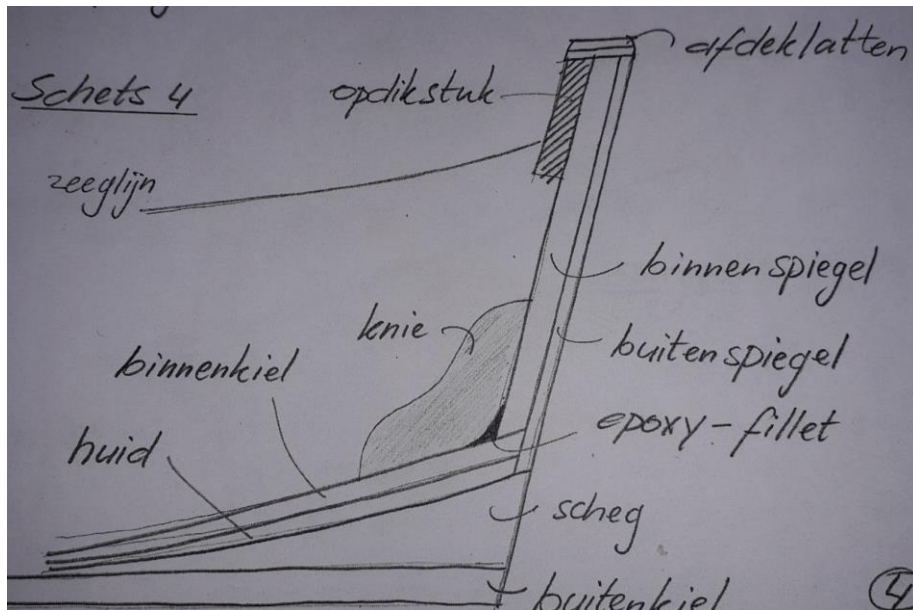 afdeklatten
Schets 4
opdikstuk
zeeglijn
binnenspiegel
knie
buitenspiegel
binnenkiel
epoxy-fillet
huid
scheg
buitenkiel
4